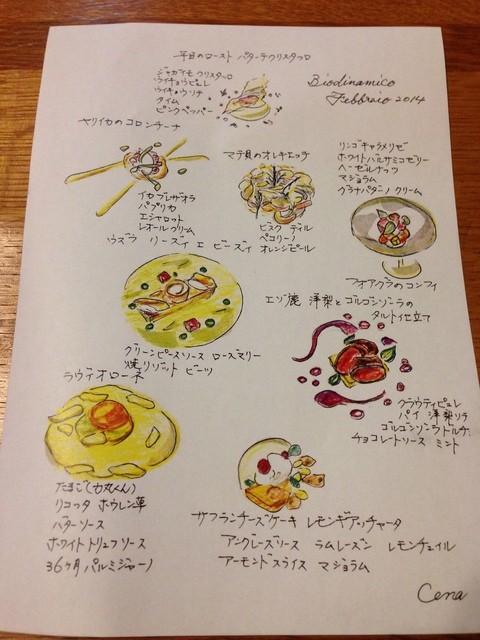 平目のロースト パターテクリスタッロ
ジャガイモクリスタッロ
ウイキョウピュレ
ウイキョウソテ
タイム
ピンクペッパー
Biodinamico
Febbraio 2014
ヤリイカのコロンナーナ
イカブレザオラ
パプリカ
エシャロット
レオールクリーム
マテ貝のオレキエッテ
ビスク ディル
ペコリーノ
オレンジピール
リンゴキャラメリゼ
ホワイトバルサミコゼリー
ヘーゼルナッツ
マジョラム
グラナパダーノ クリーム
フォアグラのコンフィ
ウズラ リーズィ エ ビーズィ
グリーンピースソース ローズマリー
焼リゾット ビーツ
エゾ鹿 洋梨とゴルゴンゾーラの
タルト仕立て
クラウティピュレ
パイ 洋梨ソテ
ゴルゴンゾーラドルチェ
チョコレートソース ミント
ラヴィオローネ
たまご(力丸くん)
リコッタ ホウレン草
バターソース
ホワイトトリュフソース
36ヶ月パルミジャーノ
サフランチーズケーキ レモンギアッチャータ
アングレーズソース ラムレーズン レモンチュイル
アーモンドスライス マジョラム
Cena